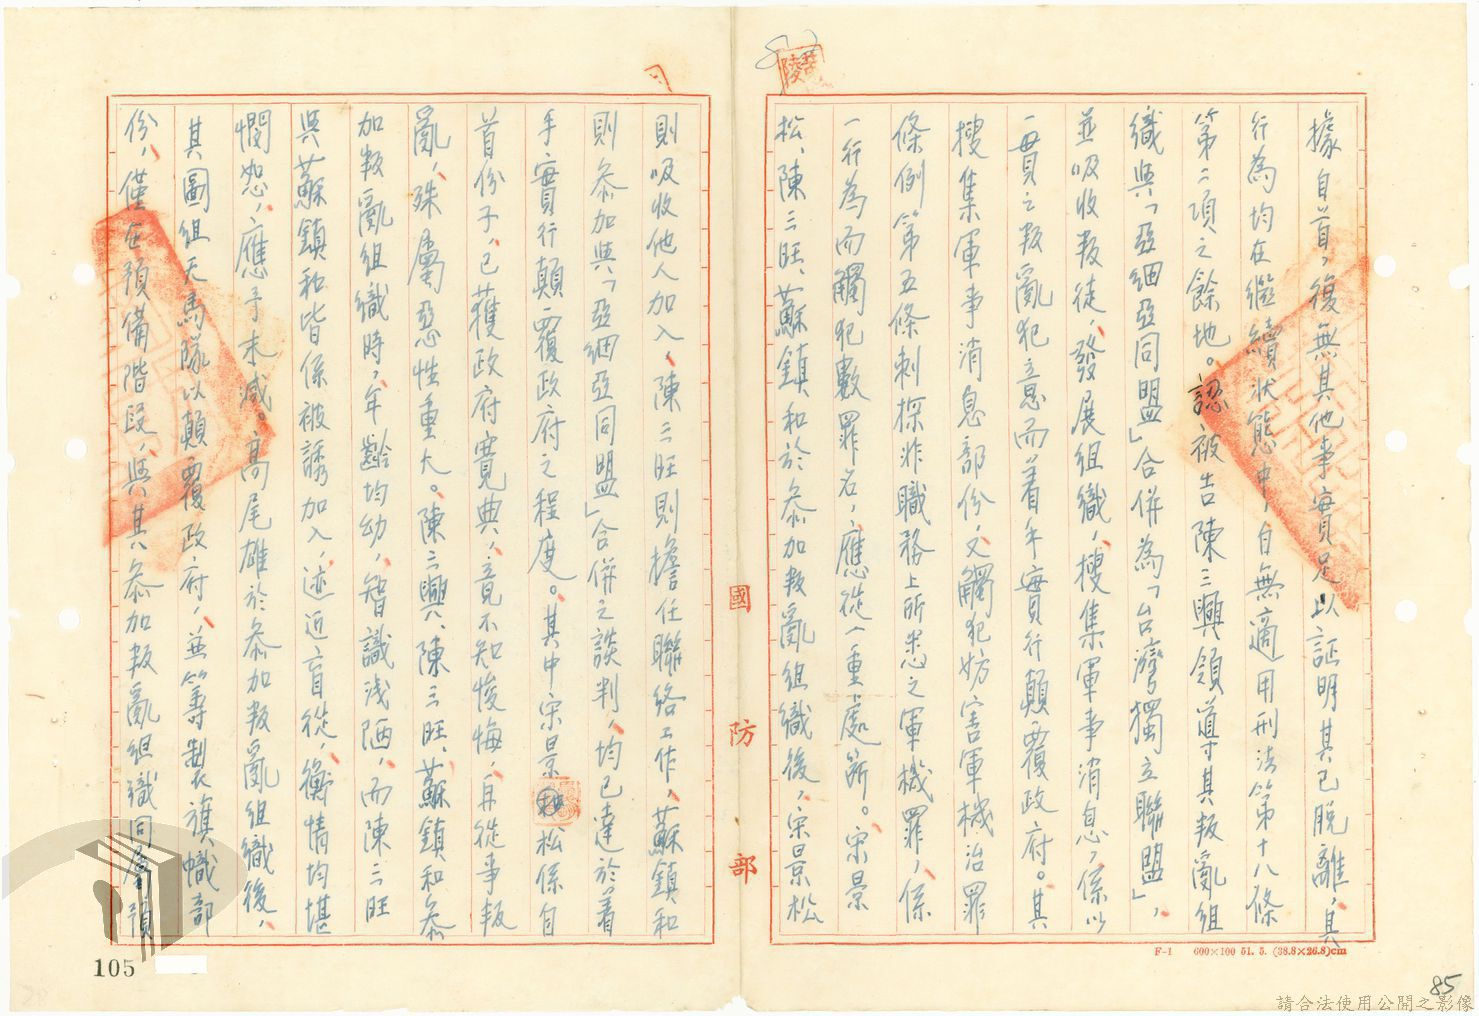 據自首，復無其他事實足以証明其已脫離，其
行為均在繼續狀態中，自無適用刑法第十八條
第二項之餘地。認被告陳三興領導其叛亂組
織與「亞細亞同盟」合併為「台灣獨立聯盟」，
並吸收叛徒，發展組織，搜集軍事消息，係以
一貫之叛亂犯意而着手實行顛覆政府。其
搜集軍事消息部份，又觸犯妨害軍機治罪
條例第五條刺探非職務上所悉之軍機罪，係
一行為而觸犯數罪名，應從一重處斷。宋景
松、陳三旺、蘇鎮和於參加叛亂組織後，宋景松
則吸收他人加入，陳三旺則擔任聯絡工作，蘇鎮和
則參加與「亞細亞同盟」合併之談判，均已達於着
手實行顛覆政府之程度。其中宋景松係自
首份子，已獲政府寬典，竟不知悛悔，再從事叛
亂，殊屬惡性重大。陳三興、陳三旺、蘇鎮和參
加叛亂組織時，年齡均幼，智識淺陋，而陳三旺
與蘇鎮和皆係被誘加入，迹近盲從，衡情均堪
憫恕，應予末減。高尾雄於參加叛亂組織後，
其圖組天馬隊以顛覆政府，並籌製旗幟部
份，僅在預備階段，與其參加叛亂組織同屬預
國防部
F-1 600×100 51. 5. (38.8×26.8)cm
105
85
請合法使用公開之影像